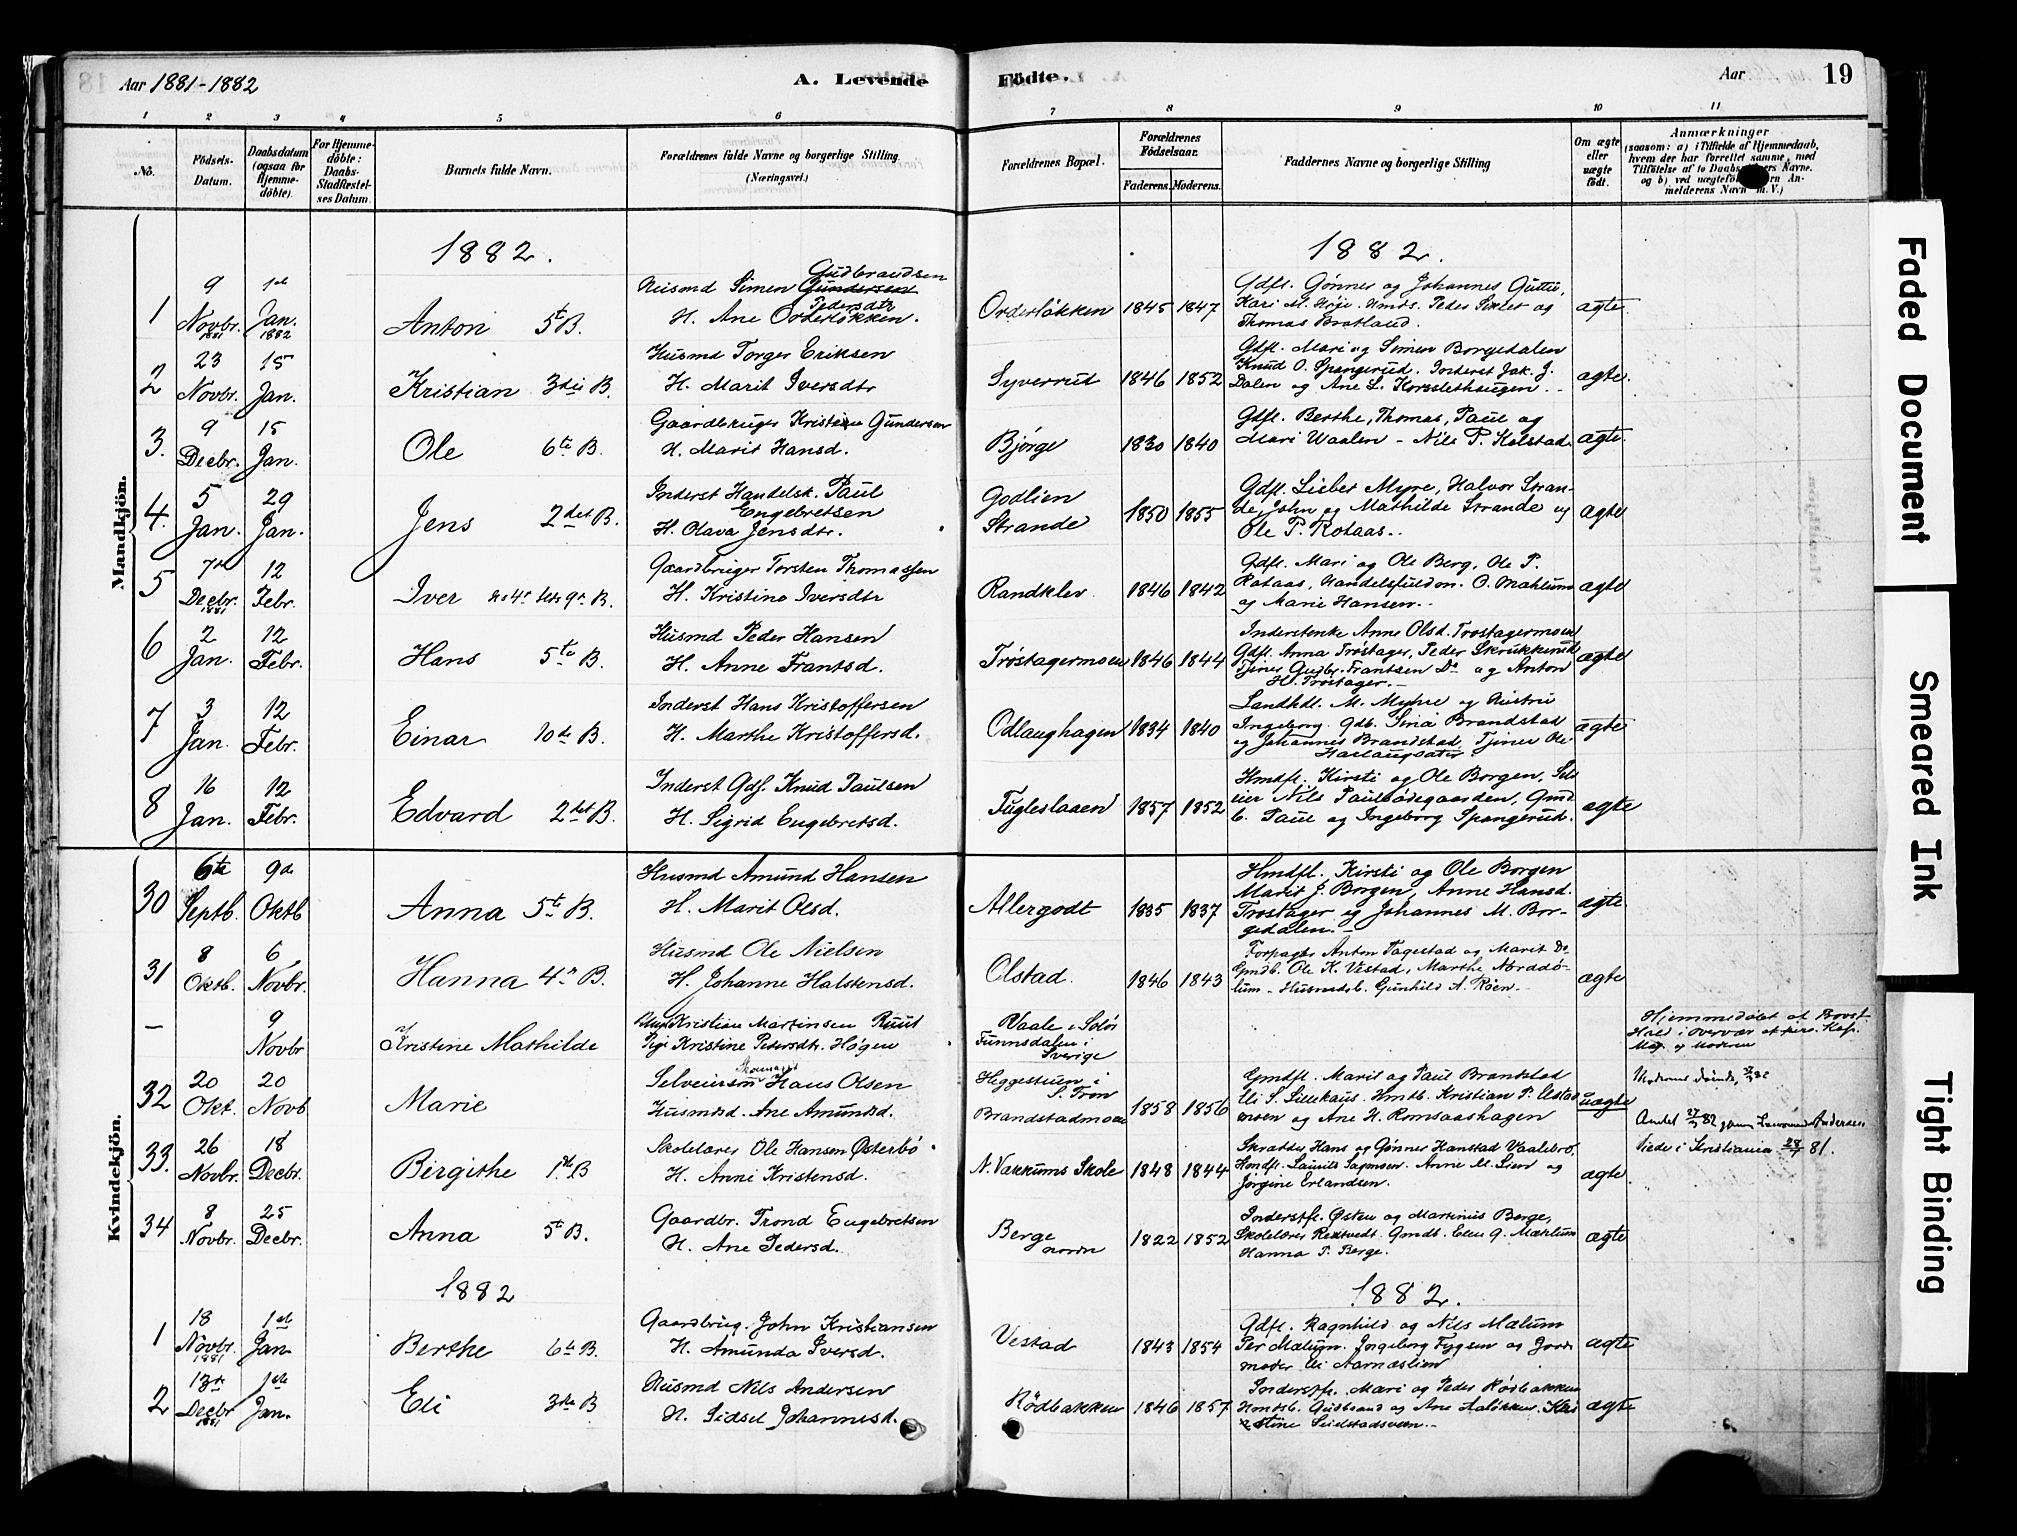 Aar 1881-1882
A. Levende
Födte.
Aar
19
1 2 3 4 5 6 7 8 9 10 11
No.
Födsels-
Datum.
Daabsdatum
(ogsaa for
Hjemme-
döbte).
For Hjemme-
döbte:
Daabs-
Stadfæstel-
ses Datum.
Barnets fulde Navn.
Forældrenes fulde Navne og borgerlige Stilling
(Næringsvei.)
Forældrenes Bopæl.
Forældrenes
Födselsaar.
Faderens.
Moderens.
Faddernes Navne og borgerlige Stilling
Om ægte
eller
uægte
født.
Anmærkninger
(saasom: a) i Tilfælde af Hjemmedaab,
hvem der har forrettet samme, med
Tilföielse af to Daabs
Navne.
melderens Navn m.V.)
Mandkjön.
1882.
1882.
1
9
Novbr.
1881
1ste
Jan.
1882
Anton 5te B.
Husmd Simen Gundersen
Gudbrandsen
H. Ane Pedersdtr
Orderløkken.
Orderløkken
1845 1847
Gdfl. Gønner og Johannes Guttu,
Kari M. Høje. Hmds. Peder Sletet og
Thomas Bratland.
ægte
2
23
Novbr.
15
Jan.
Kristian 3die B.
Husmd Torger Eriksen
H. Marit Iversdtr
Syverrud
1846 1852
Gdfl. Mari og Simen Borgedalen
Knud O. Spangerud. Inderst Jak. J.
Dalen og Ane L. Korsslethaugen.
ægte.
3.
9
Decbr.
15
Jan.
Ole 6te B.
Gaardbruger Kristian Gundersen
H. Marit Hansd.
Bjørge
1830 1840
Gdfl. Berthe, Thomas, Paul og
Mari Waalen - Nils P. Kolstad.
ægte
4.
5
Jan.
29
Jan.
Jens 2det B.
Inderst Handelsk. Paul
Engebretsen
H. Olava Jensdtr.
Godlien
Strande
1850 1855
Gdfl. Lisbet Myre, Halvor Stran-
de, John og Mathilde Strande og
Ole P. Rotaas.
ægte
5
7de
Decbr.
1881
12
Febr.
Iver
Gaardbruger Torsten Thomassen
H. Kristine Iversdtr
Randklev
1846 1842
Gdfl. Mari og Ole Berg, Ole P.
Rotaas, Handelsfuldm. O. Mæhlum
og Marie Hansen.
ægte
6
2
Jan.
12
Febr.
Hans 5te B.
Husmd Peder Hansen
H. Anne Frantsd.
Trøstagermoen
1846 1844
Inderstenke Anne Olsd. Trøstagermoen
Gdfl. Anna Trøstager, Peder Skrukkerud
Tjener Gudbr. Frantsen Do og Anton
H. Trøstager.
ægte
7
3
Jan.
12
Febr.
Einar 10de B.
Inderst Hans Kristoffersen
H. Marthe Kristoffersd.
Odlaughagen
1834 1840
Landhdl. M. Myhre og Hustru
Ingeborg. Gdb. Sina Brandstad
og Johannes Brandstad, Tjener Ole
ægte
8
16
Jan.
12
Febr.
Edvard 2det B.
Inderst Gdf. Knud Paulsen
H. Sigrid Engebretsd.
Fugleslaaen
1857 1852
Hmdfl. Kirsti og Ole Borgen, Sel-
eier Nils Paulsødegaarden, Gmd
b. Paul og Ingeborg Spangerud.
ægte
Kvindekjön.
30
6te
Septb.
9de
Oktb
Anna 5te B.
Husmd Amund Hansen
H. Marit Olsd.
Allergodt
1835 1837
Hmdfl. Kirsti og Ole Borgen
Marit J. Borgen, Anne Hansd.
Trøstager og Johannes M. Bor-
gedalen.
ægte
31
8
Oktb.
6
Novbr.
Hanna 4de B.
Husmd Ole Nielsen
H. Johanne Halstensd.
Olstad.
1846 1843
Forpagter Anton Tagestad og Marit Do
Gmdb. Ole K. Vestad, Marthe Nordda-
lum - Husmdsb. Gunhild A. Røen.
ægte
—
9
Novbr
Kristine Mathilde
Kristian Martinsen Ruud
Pige Kristine Pedersdtr. Høgen
Vaale i Solør
Funnsdalen i
Sverige
Hjemmedøbt
Moderen
32
20
Okt.
20
Novb
Marie
Selveiersøn Hans Olsen
Husmdsd. Ane Amundsd.
Heggestuen i
S. Fron
Brandstadmoen
1858 1856
Gmdfl. Marit og Paul Brandstad
Eli S. Lillehaus. Hmdb. Kristian P. Olstad
moen og Ane H. Romsaashagen
uægte
33.
26
Novbr.
18
Decbr.
Birgithe 1ste B
Skolelærer Ole Hansen Østerbø
H. Anne Kristensd.
N. Vækkums Skole
1848 1844
Skrædder Hans og Gønner Hanstad Vaalebro,
Jørgine Erlandsen.
ægte
i Kristiania 28/7 81.
34
8
Novbr.
25
Decbr.
Anna 5te B.
Gaardbr. Trond Engebretsen
H. Ane Pedersd.
Berge
nordn
1822 1852
Inderstfl. Østen og Martinus Berge,
Skolelærer Rekvedt. Gmdb. Ellen G. Mæhlum
Hanna P. Berge.
ægte
1882
1882.
1
18
Novbr.
1881
1ste
Jan.
Berthe 6te B.
Gaardbrug. John Kristiansen
H. Amunda Iversd.
Vestad
1843 1854
Gdfl. Ragnhild og Nils Mælum
Per Mælum. Ingeborg Fygsen og Jord-
moder Eli Aarnæslien
ægte
2
13de
Decbr
1881
1ste
Jan.
Eli 3die B
Husmd Nils Andersen
H. Sidsel Johannesd.
Rödbakken
1846 1857
Inderstfl. Mari og Peder Rödbakken
Hmdsb. Gudbrand og Ane Aaløkken. Kri-
stine Seielstadsveen.
ægte
Faded Document
Smeared Ink
Tight Binding